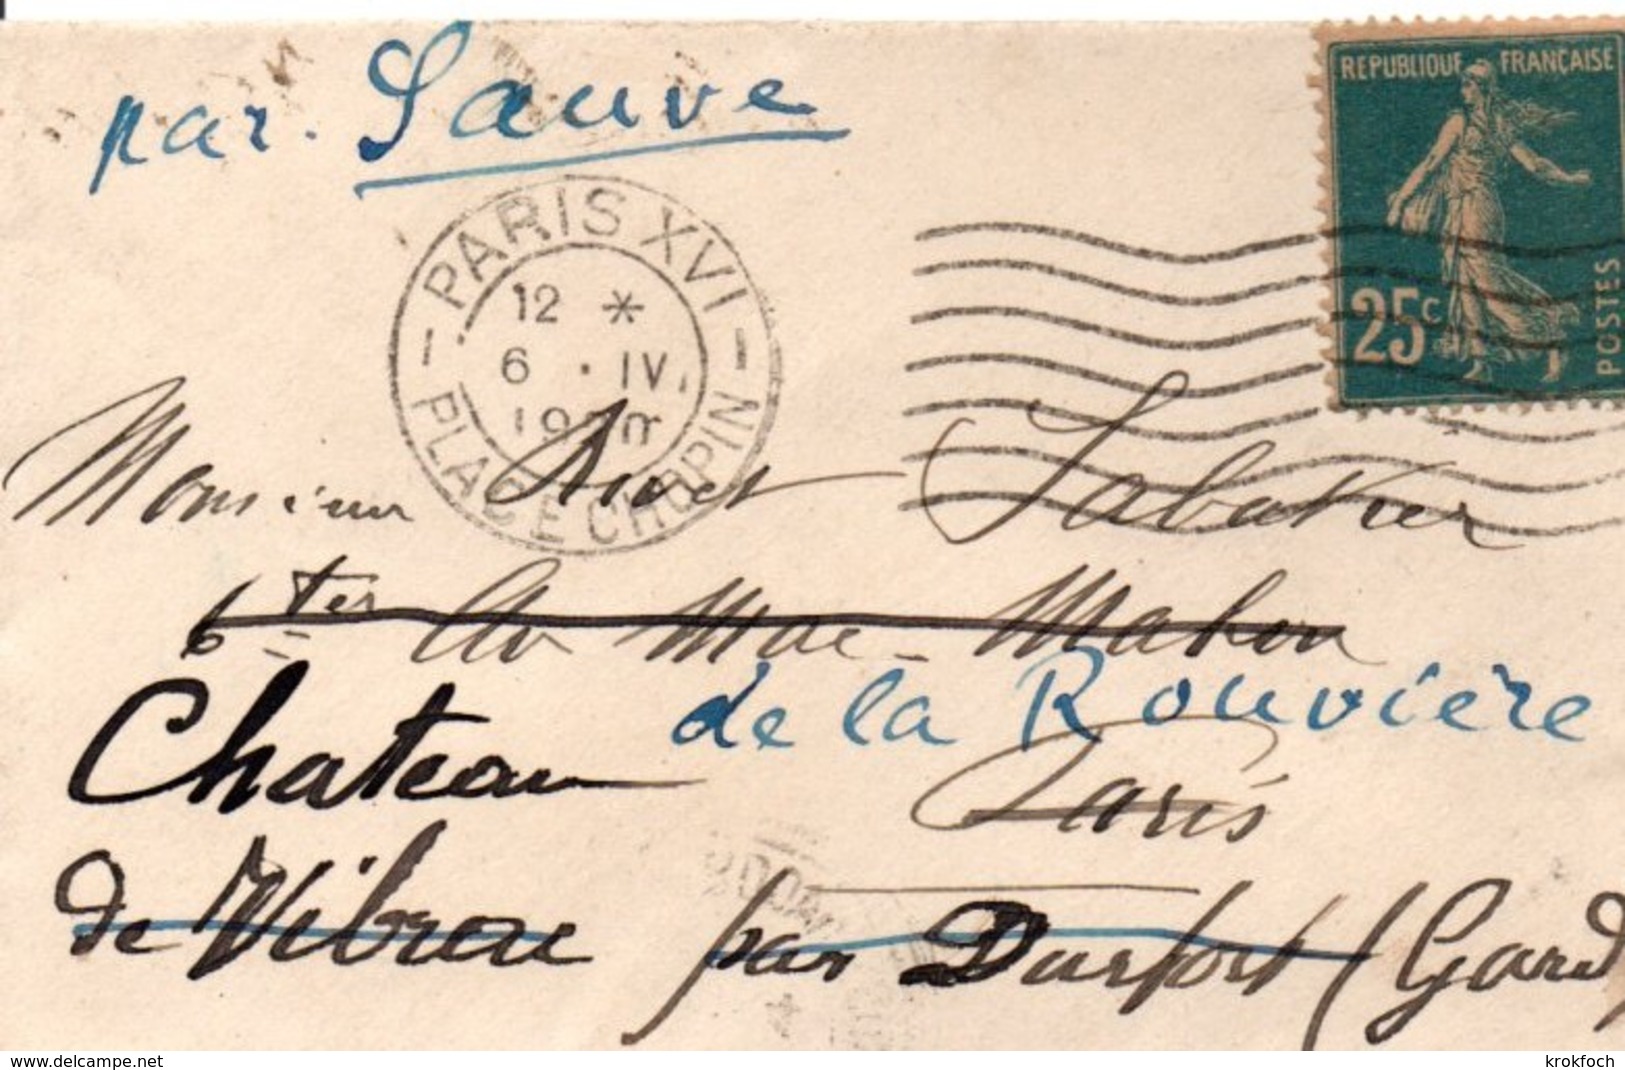 par. Sauve
REPUBLIQUE FRANÇAISE
25c
POSTES
PARIS XVI
12 *
6 . IV.
PLACE CHOPIN
Monsieur Sabatier
6 ter Av Mac-Mahon
de la Rouvière
Chateau
Paris
de Vibrac par Durfort (Gard)
www.delcampe.net
krokfoch